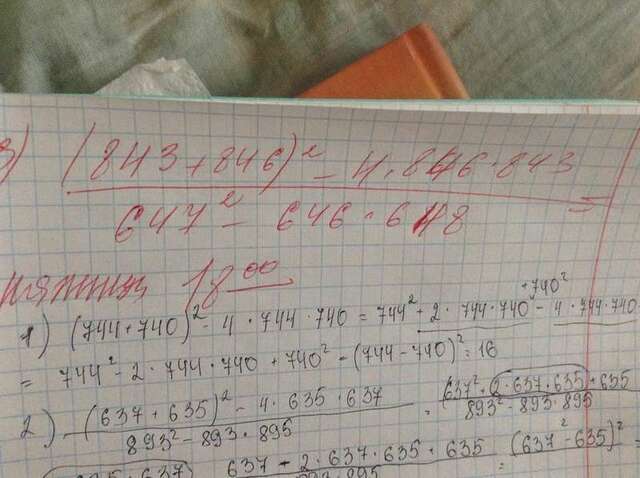 3) (843+846)² - 4·846·843
647² - 646·648 =
пятница 18⁰⁰
+740²
1) (744+740)² - 4·744·740 = 744² + 2·744·740 - 4·744·740
= 744² - 2·744·740 + 740² - (744-740)² = 16
2) (637+635)² - 4·635·637 = (637² + 2·637·635) + 635
893² - 893·895 893² - 893·895
637 + 2·637·635 + 635 = (637² - 635)² =